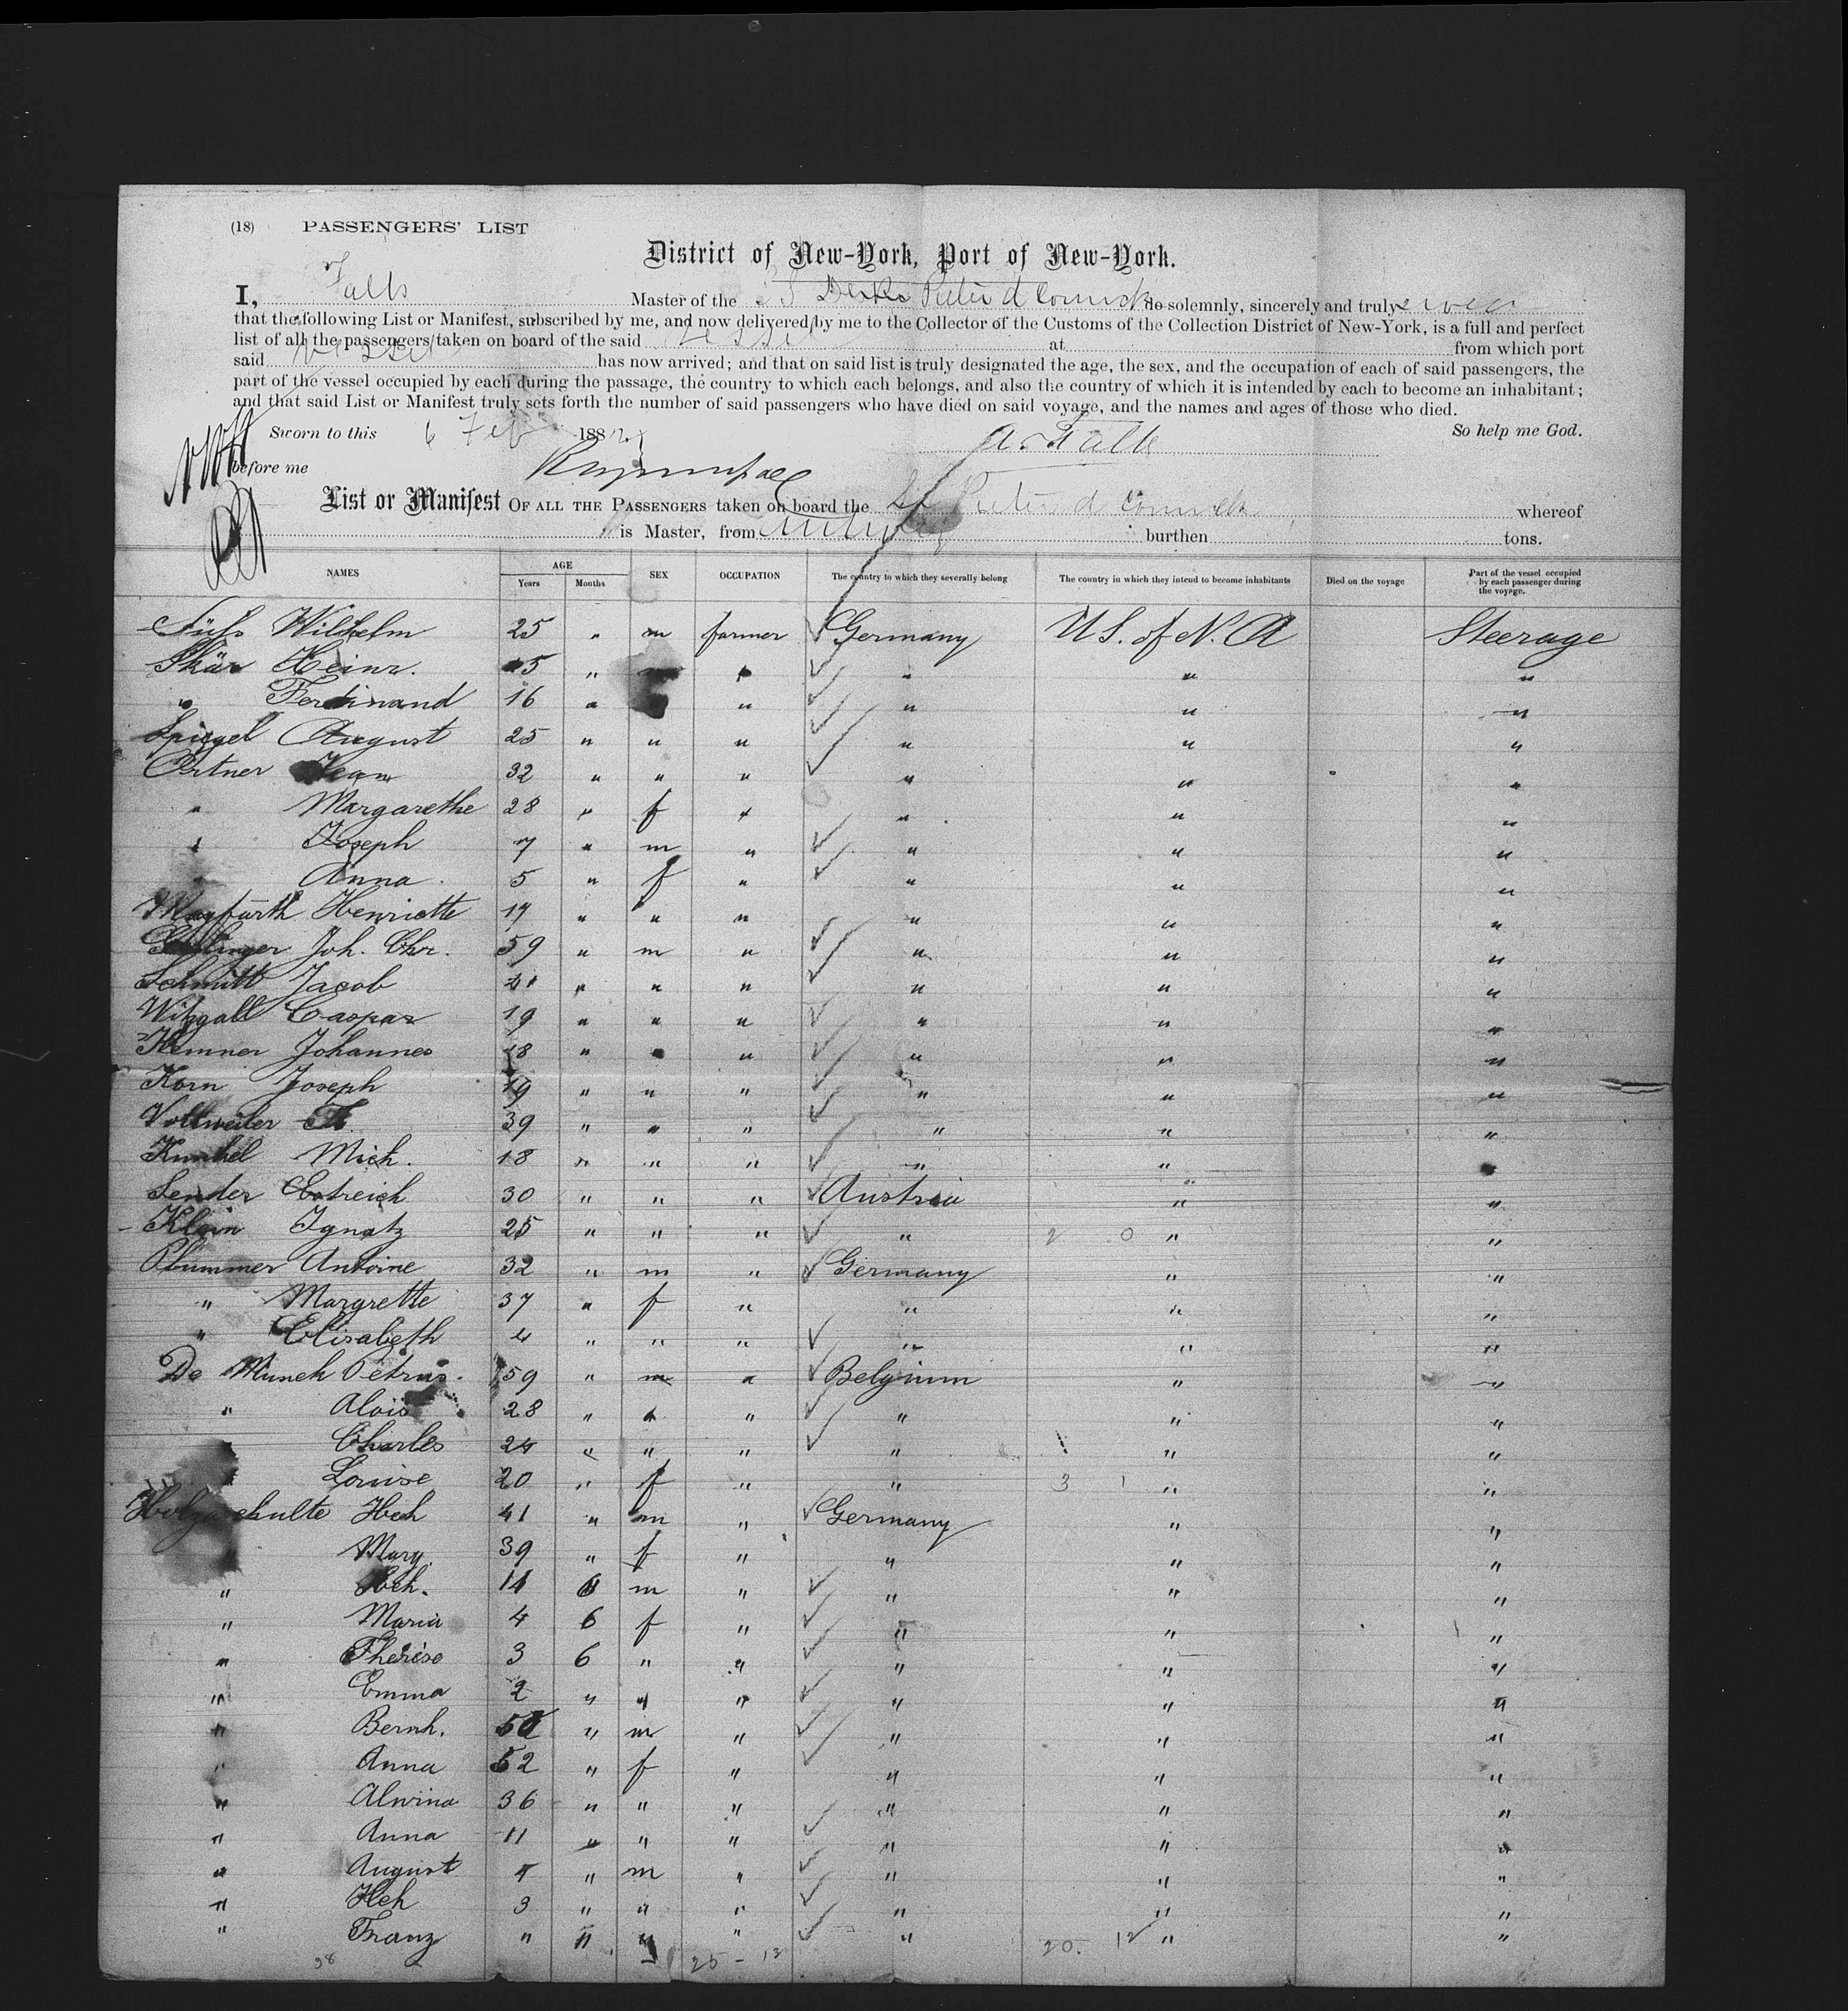 (18) PASSENGERS' LIST
District of New-York, Port of New-York.
I, Falk Master of the SS Pieter d Coninck do solemnly, sincerely and truly swear
that the following List or Manifest, subscribed by me, and now delivered by me to the Collector of the Customs of the Collection District of New-York, is a full and perfect
list of all the passengers taken on board of the said vessel at from which port
said vessel has now arrived; and that on said list is truly designated the age, the sex, and the occupation of each of said passengers, the
part of the vessel occupied by each during the passage, the country to which each belongs, and also the country of which it is intended by each to become an inhabitant;
and that said List or Manifest truly sets forth the number of said passengers who have died on said voyage, and the names and ages of those who died.
Sworn to this 6 Feb 1882 A. Falk So help me God.
before me
List or Manifest OF ALL THE PASSENGERS taken on board the SS Pieter d Coninck whereof
is Master, from burthen tons.
NAMES AGE Years Months SEX OCCUPATION The country to which they severally belong The country in which they intend to become inhabitants Died on the voyage Part of the vessel occupied by each passenger during the voyage.
Füfs Wilhelm 25 " m farmer Germany U S. of N. A Steerage
Skär Heinr. " " " " "
" Ferdinand 16 " " " " " "
Spiegel August 25 " " " " " "
Ortner 32 " " " " " "
" Margarethe 28 " f " " " "
" Joseph 7 " m " " " "
" Anna 5 " f " " " "
Henriette 17 " " " " " "
Joh. Chr. 59 " m " " " "
Schmitt Jacob " " " " " "
Witzgall Caspar 19 " " " " " "
Johannes 18 " " " " " "
Korn Joseph 19 " " " " " "
Vollweiler 39 " " " " " "
Kunkel Mich. 18 " " " " " "
Sender Estreich 30 " " " Austria " "
Klein Ignatz 25 " " " " 2 0 " "
Plummer Antoine 32 " m " Germany " "
" Margrette 37 " f " " " "
" Elisabeth 4 " " " " " "
De Munck Petrus. 59 " m " Belgium " "
" Alois 28 " " " " " "
" Charles 24 " " " " " "
" Louise 20 " f " " 3 1 " "
Holzaschulte Hch 41 " m " Germany " "
" Mary. 39 " f " " " "
" Hch. 11 m " " " "
" Maria 4 6 f " " " "
" Therese 3 6 " " " " "
" Emma 2 " " " " " "
" Bernh. " m " " " "
" Anna 52 " f " " " "
" Alwina 36 " " " " " "
" Anna 11 " " " " " "
" August " m " " " "
" Hch 3 " " " " " "
" Franz " " " " " " "
38 25 - 13 20. 12